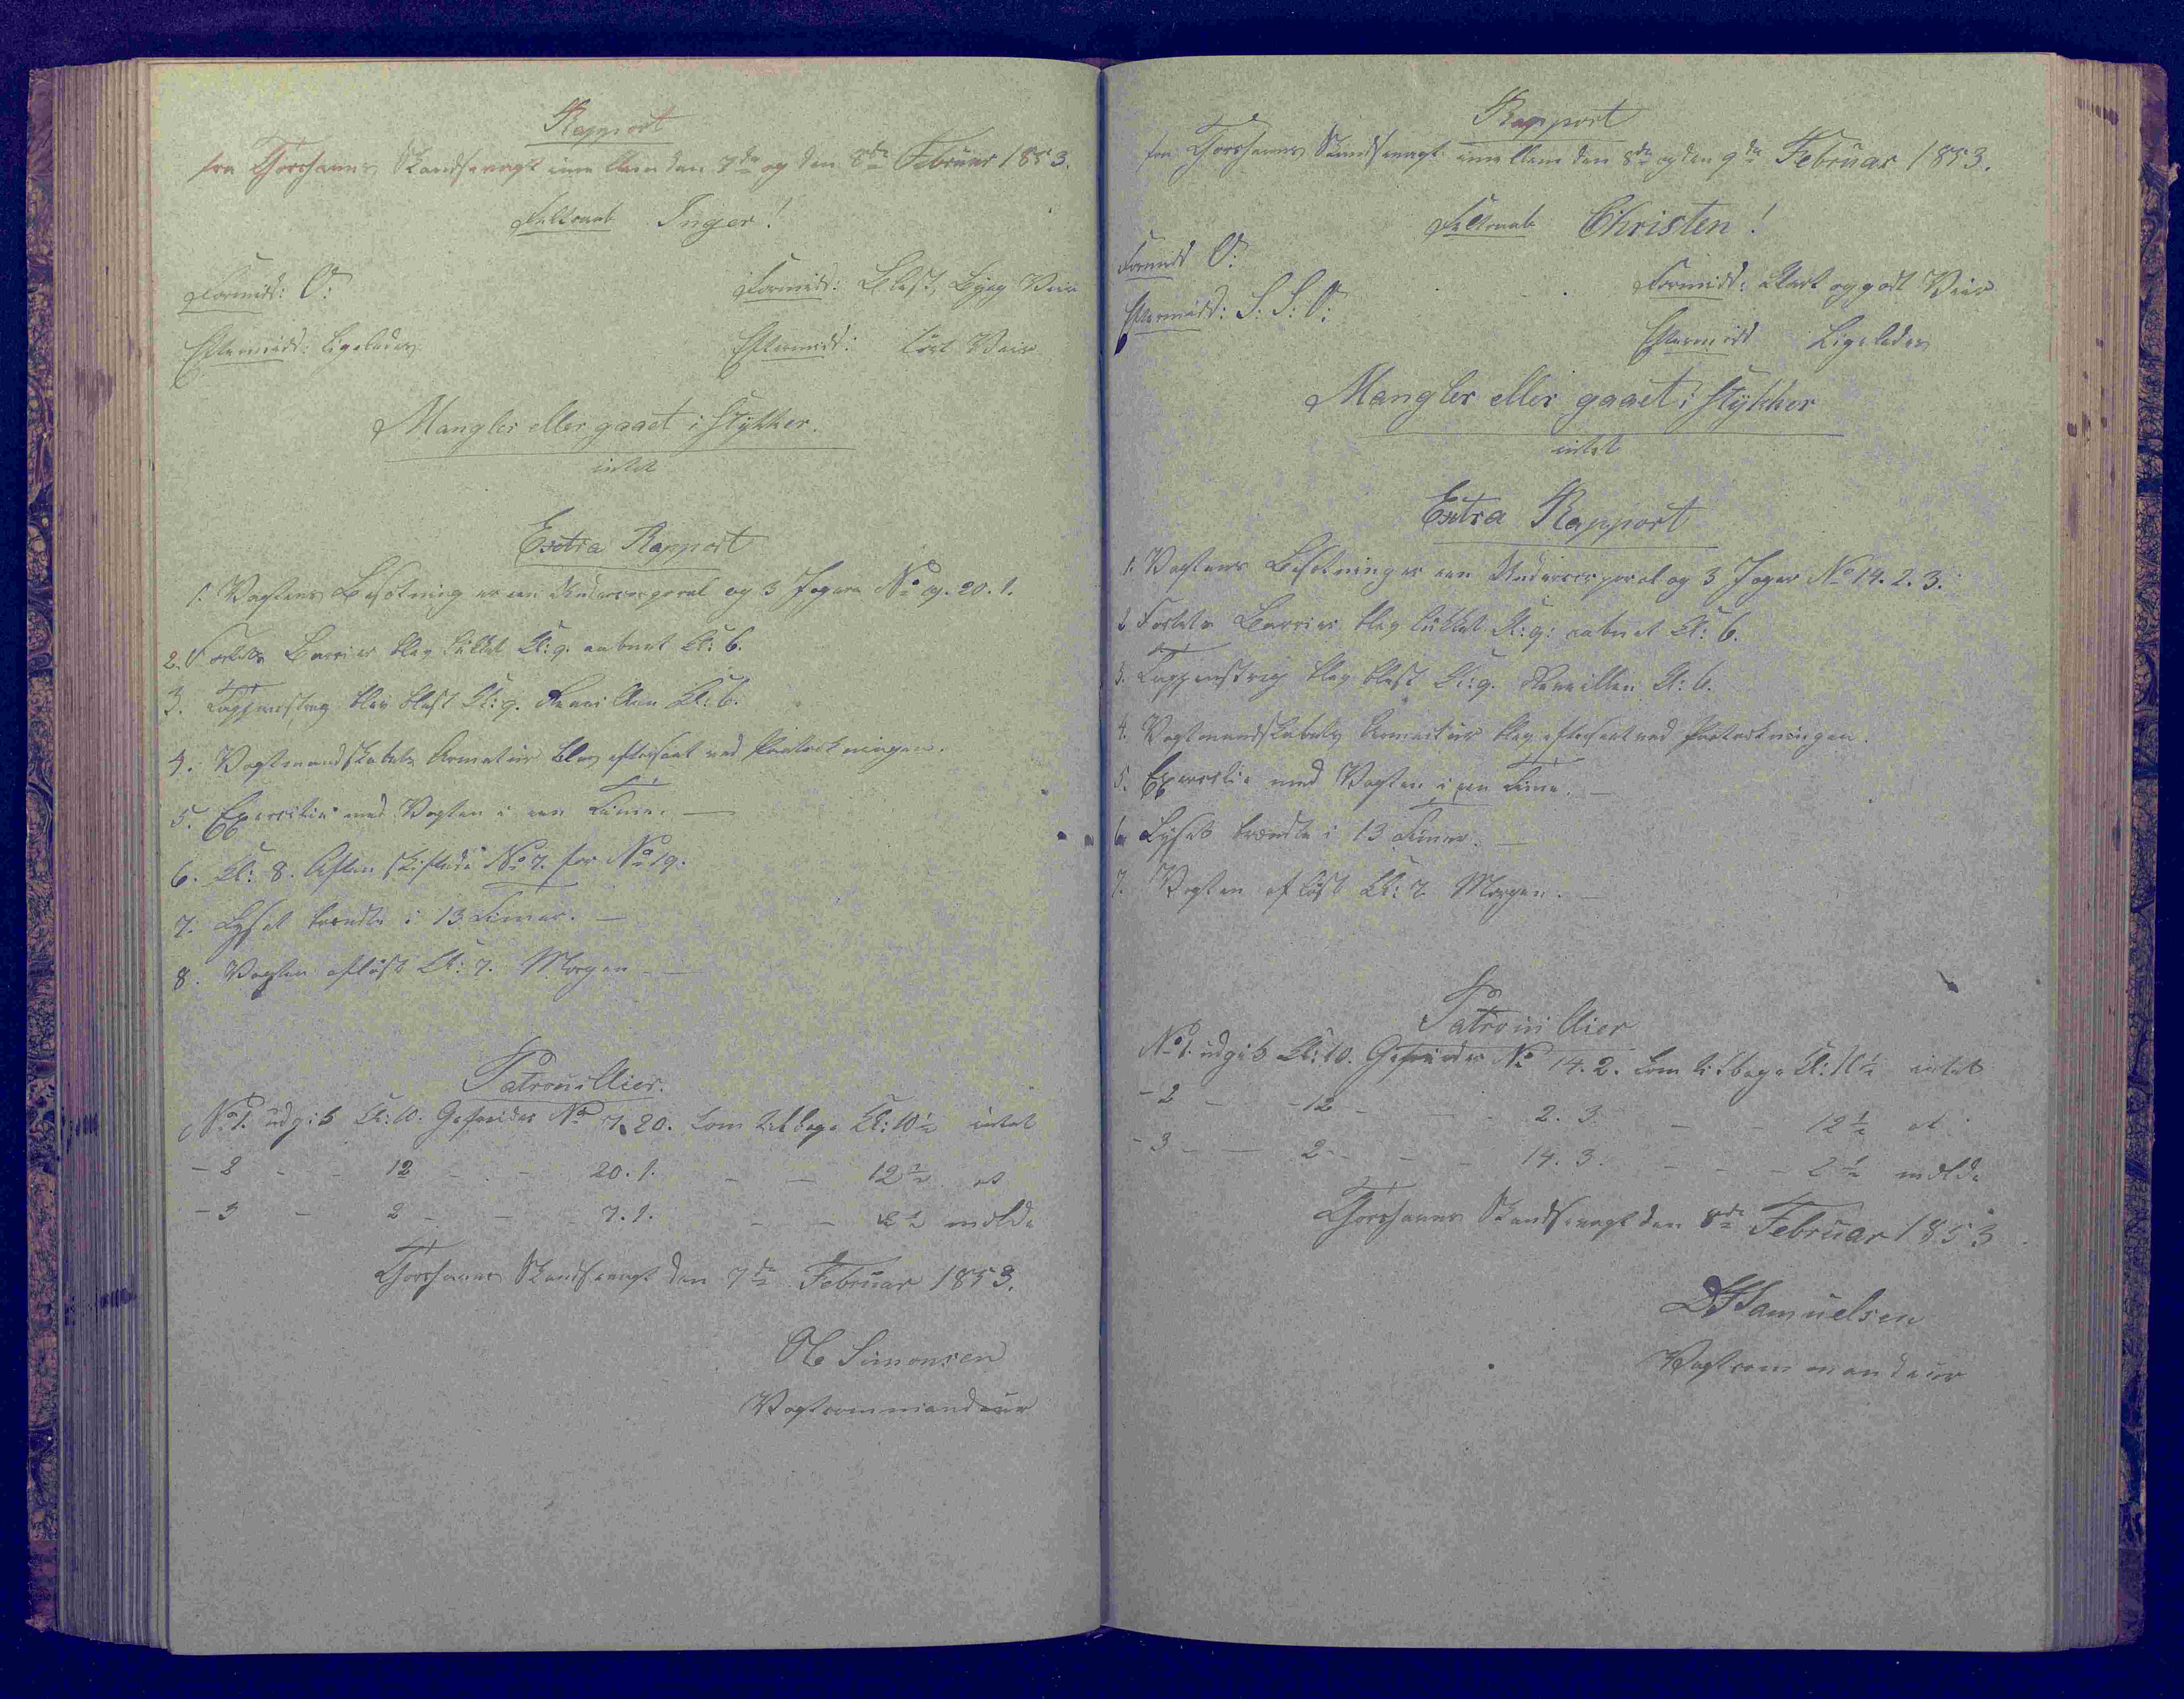 Rapport
fra Thorshavns Skandsevagt imellem den 7de og den 8de Februar 1853.
Feltraab Inger!
Formidd: O:
Formidd: Blæst, Byag Veir
Eftermidd: Ligeledes
Eftermidd: tört Veir
Mangler eller gaaet i Stykker.
intet
Extra Rapport
1. Vagtens Besætning er een Undercorporal og 3 Jægere No 19. 20. 1.
2. Fortets Barrier blev lukket Kl: 9. aabnet Kl: 6.
3. Tappenstreg blev blæst Kl: 9. Reveillen Kl: 6.
4. Vagtmandskabets Armatur blev efterseet ved Paatrækningen.
5. Exercitie med Vagten i een Time. —
6. Kl: 8. Aften skiftede No 7. for No 19.
7. Lyset brændte i 13 Timer. —
8. Vagten aflöst Kl: 7. Morgen —
Patrouillier.
No 1. udgik Kl: 10. Gefreider No 7. 20. kom tilbage Kl: 10½ intet
- 2 - - 12 - - 20. 1. - - 12½ at
- 3 - 2 - - 7. 1. - - 2½ melde
Thorshavns Skandsevagt den 7de Februar 1853.
Ole Simonsen
Vagtcommandeur
Rapport
fra Thorshavns Skandsevagt imellem den 8de og den 9de Februar 1853.
Feltraab Christen!
Formidd O:
Formidd: klart og godt Veir
Eftermidd: S: S: O:
Eftermidd Ligeledes
Mangler eller gaaet i Stykker
intet
Extra Rapport
1. Vagtens Besætning er een Undercorporal og 3 Jæger No 14. 2. 3.
2 Fortets Barrier blev lukket Kl: 9: aabnet Kl: 6.
3. Tappenstreg blev blæst Kl: 9. Reveillen Kl: 6.
4. Vagtmandskabets Armatur blev efterseet ved Paatrækningen.
5. Exercitie med Vagten i een Time. —
6 Lyset brændte i 13 Timer. —
7. Vagten aflöst Kl: 7 Morgen. —
Patrouillier
No 1. udgik Kl: 10. Gefreider No 14. 2. kom tilbage Kl: 10½ intet
- 2 - - 12 - - - 2. 3. - - 12½ at
- 3 - - 2 - - - 14. 3. - - - 2½ melde
Thorshavns Skandsevagt den 8de Februar 1853
DJSamuelsen
Vagtcommandeur